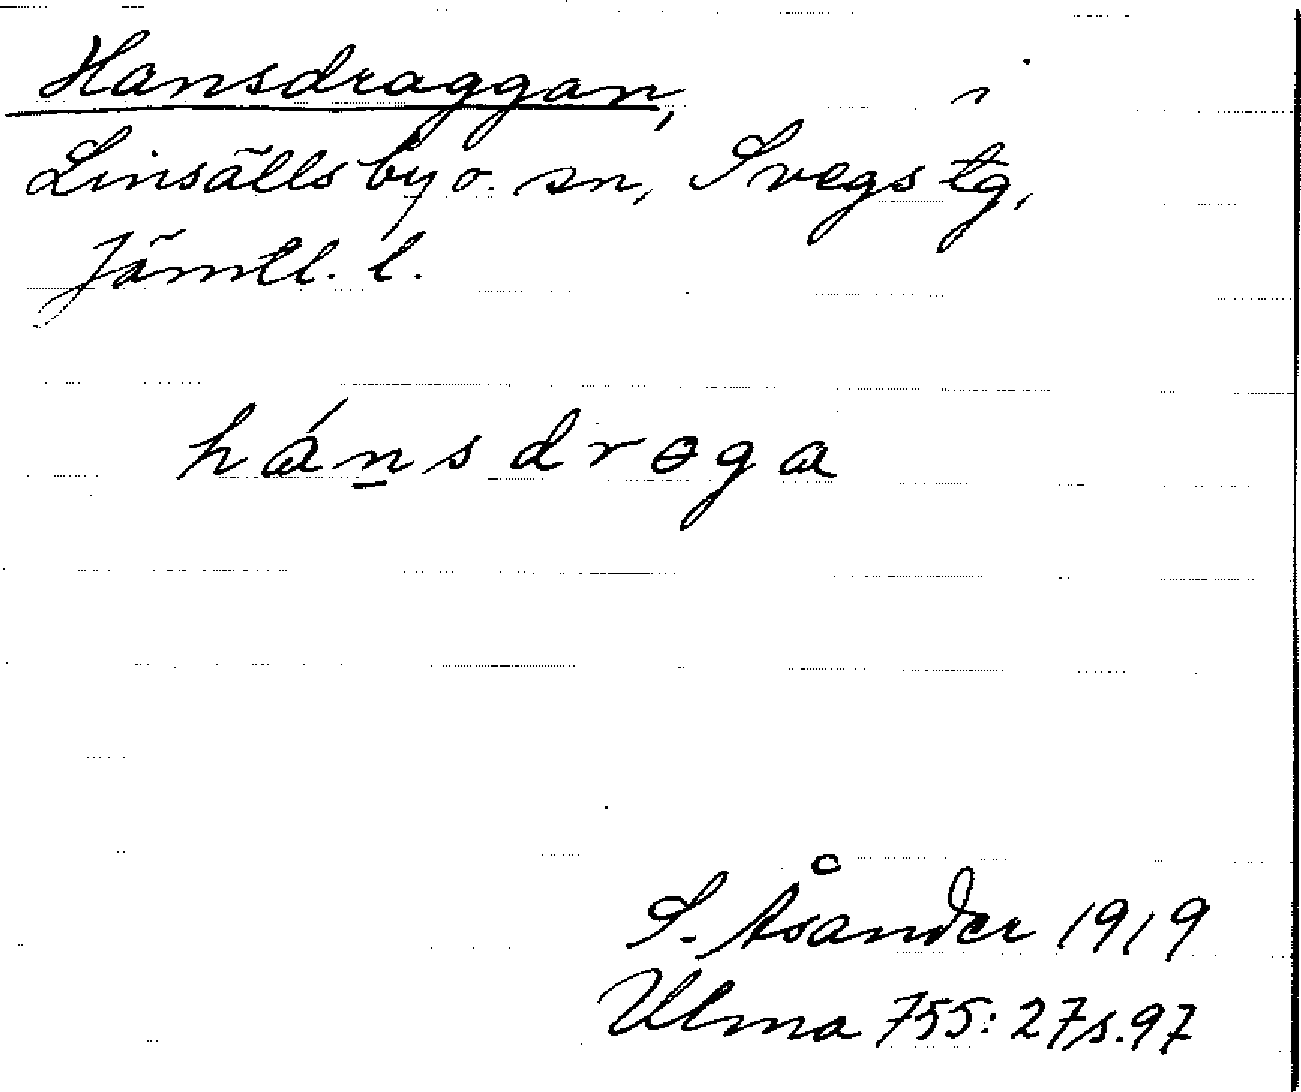 Hansdraggan,
Linsälls by o. sn, Svegs tg,
Jämtl. l.
hánsdrɵga
S. Åsander 1919
Ulma 755: 27 s. 97